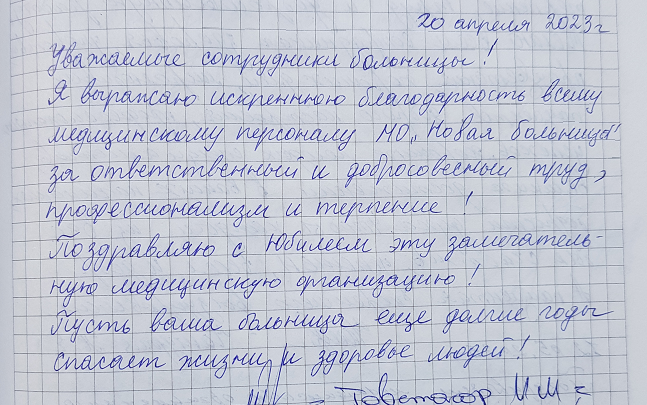 20 апреля 2023г
Уважаемые сотрудники больницы!
Я выражаю искреннюю благодарность всему
медицинскому персоналу МО „Новая больница"
за ответственный и добросовесный труд,
профессионализм и терпение!
Поздравляю с юбилеем эту замечатель-
ную медицинскую организацию!
Пусть ваша больница еще долгие годы
спасает жизни и здоровье людей!